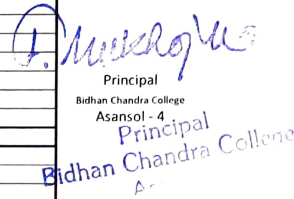 Principal
Bidhan Chandra College
Asansol - 4
Principal
Bidhan Chandra College